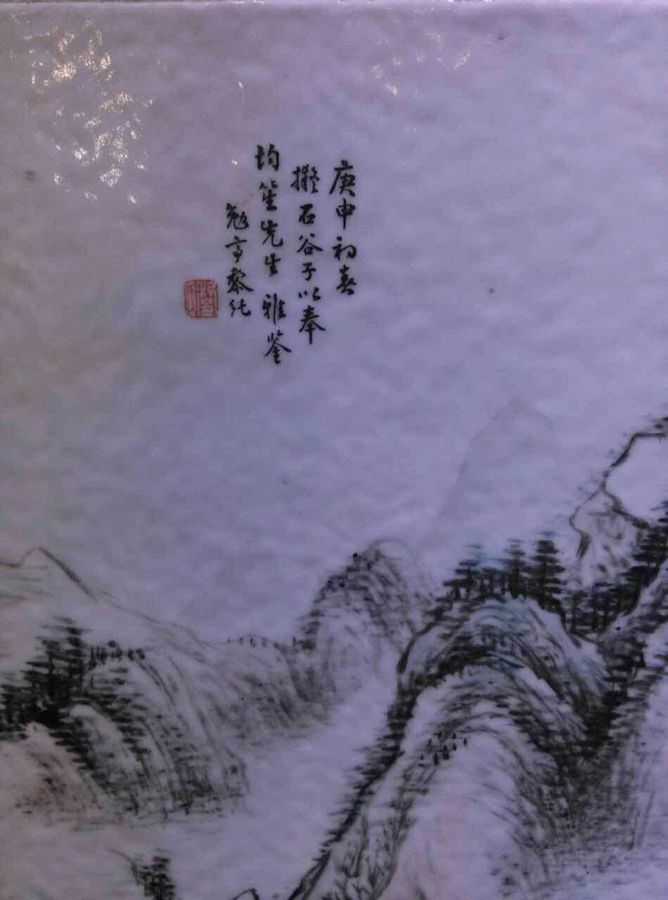 庚申初春
擬石谷子以奉
均笙先生雅鉴
勉亭黎純